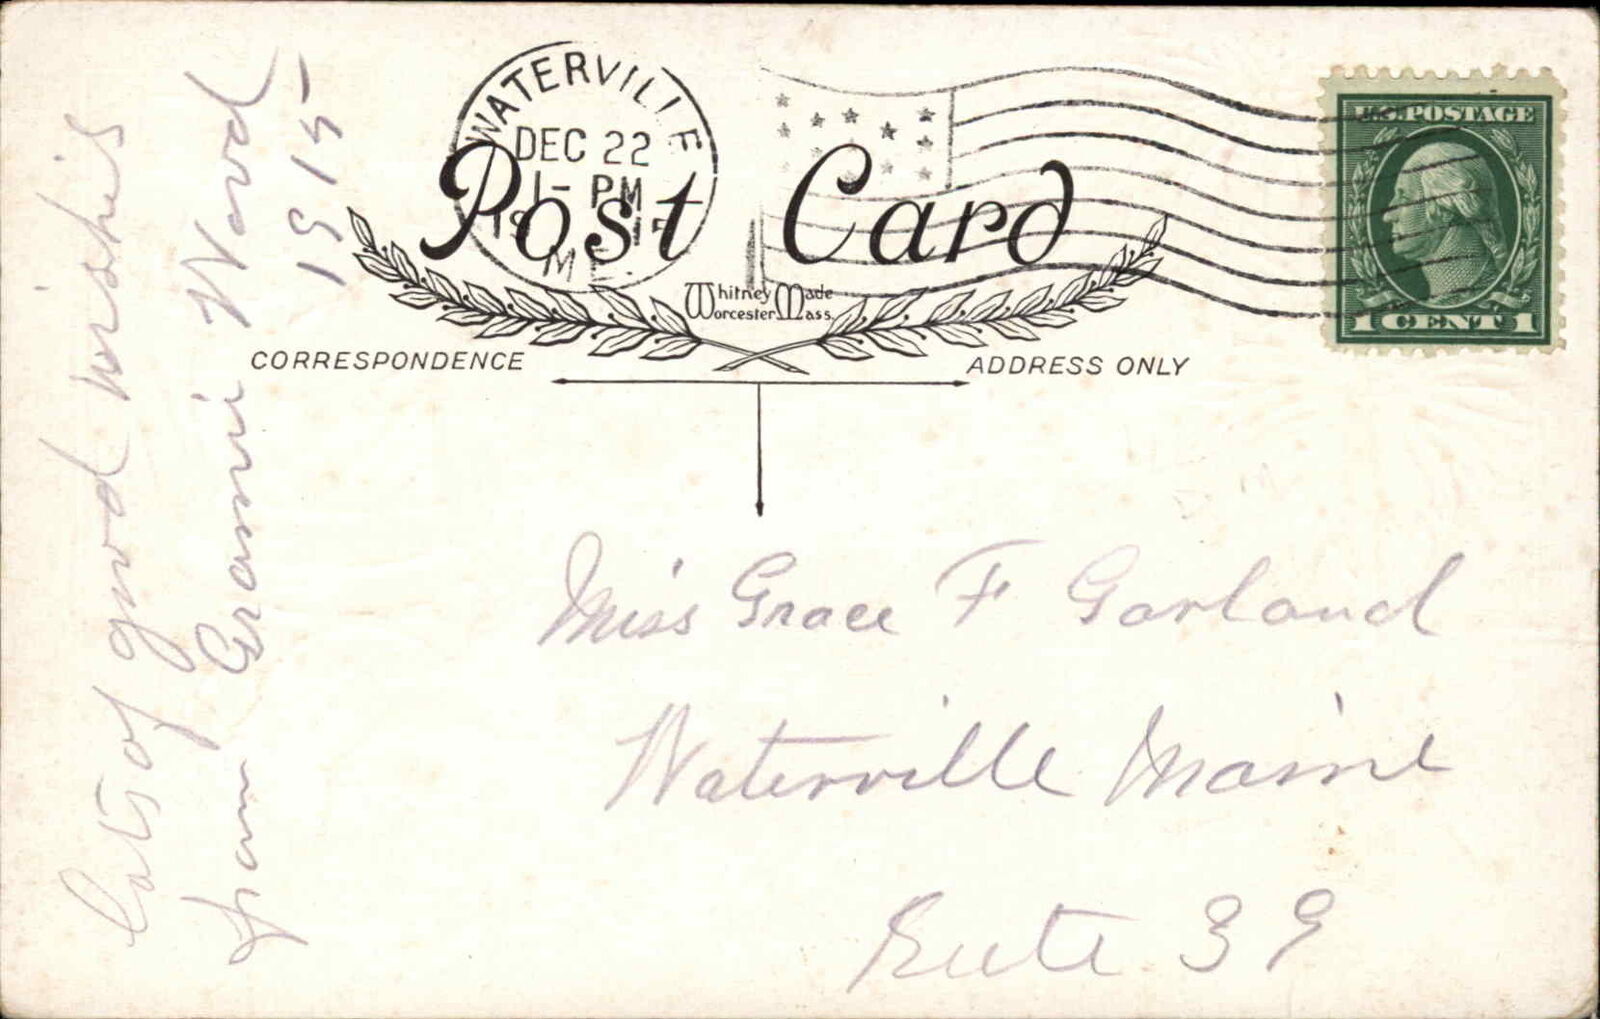 WATERVILLE
DEC 22
1- PM
1915
ME.
U.S. POSTAGE
1 CENT 1
Post Card
Whitney Made
Worcester, Mass.
CORRESPONDENCE
ADDRESS ONLY
Lots of good wishes
from Grammie Wood
1915
Miss Grace F Garland
Waterville Maine
Rute 39